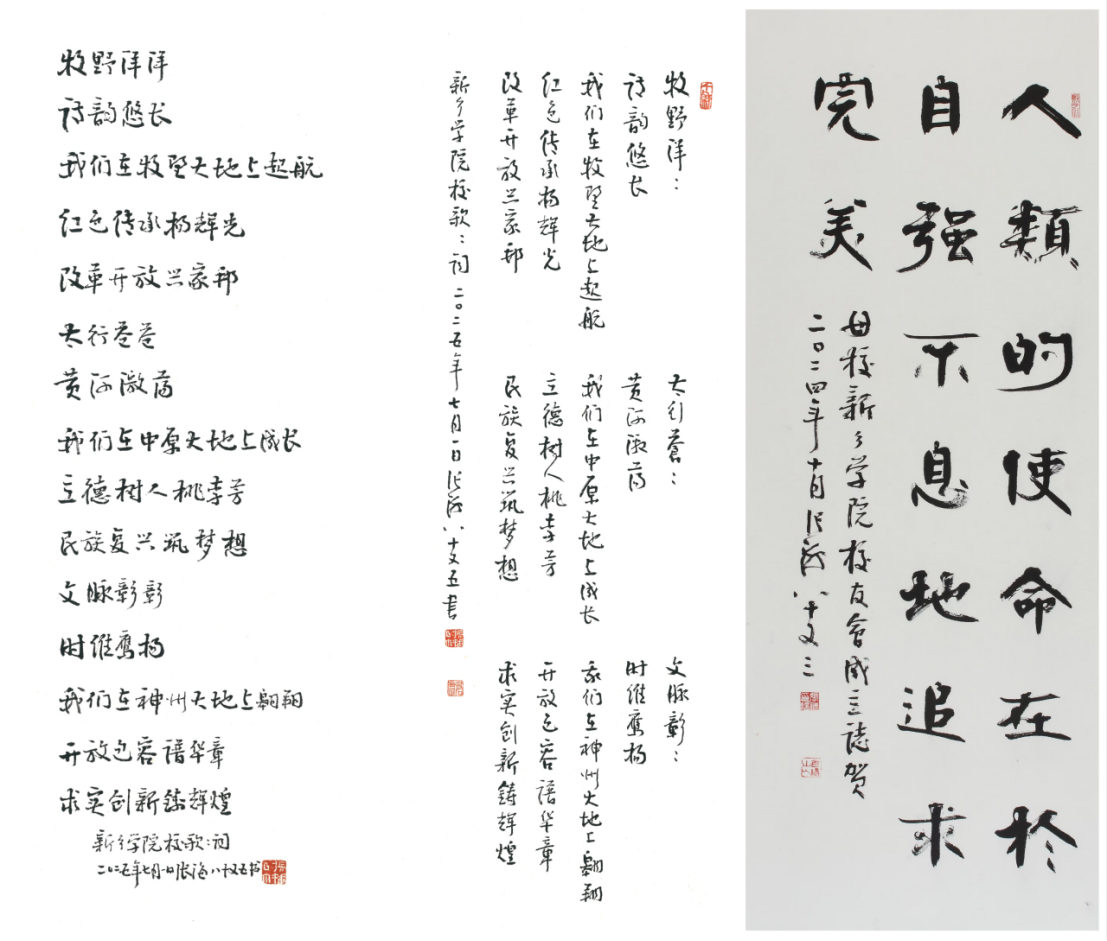 牧野洋洋
诗韵悠长
我们在牧野大地上起航
红色传承扬辉光
改革开放兴家邦
太行苍苍
黄河激荡
我们在中原大地上成长
立德树人桃李芳
民族复兴筑梦想
文脉彰彰
时维鹰扬
我们在神州大地上翱翔
开放包容谱华章
求实创新铸辉煌
新乡学院校歌:词
二〇二五年七月一日张海八十又五书
牧野洋:
诗韵悠长
我们在牧野大地上起航
红色传承扬辉光
改革开放兴家邦
太行蒼:
黄河激荡
我们在中原大地上成长
立德树人桃李芳
民族复兴筑梦想
文脉彰:
时维鹰扬
我们在神州大地上翱翔
开放包容谱华章
求实创新铸辉煌
新乡学院校歌:词二〇二五年七月一日张海八十又五书
人類的使命在於
自强不息地追求
完美
母校新乡学院校友会成立誌贺
二〇二四年十月张海八十又三